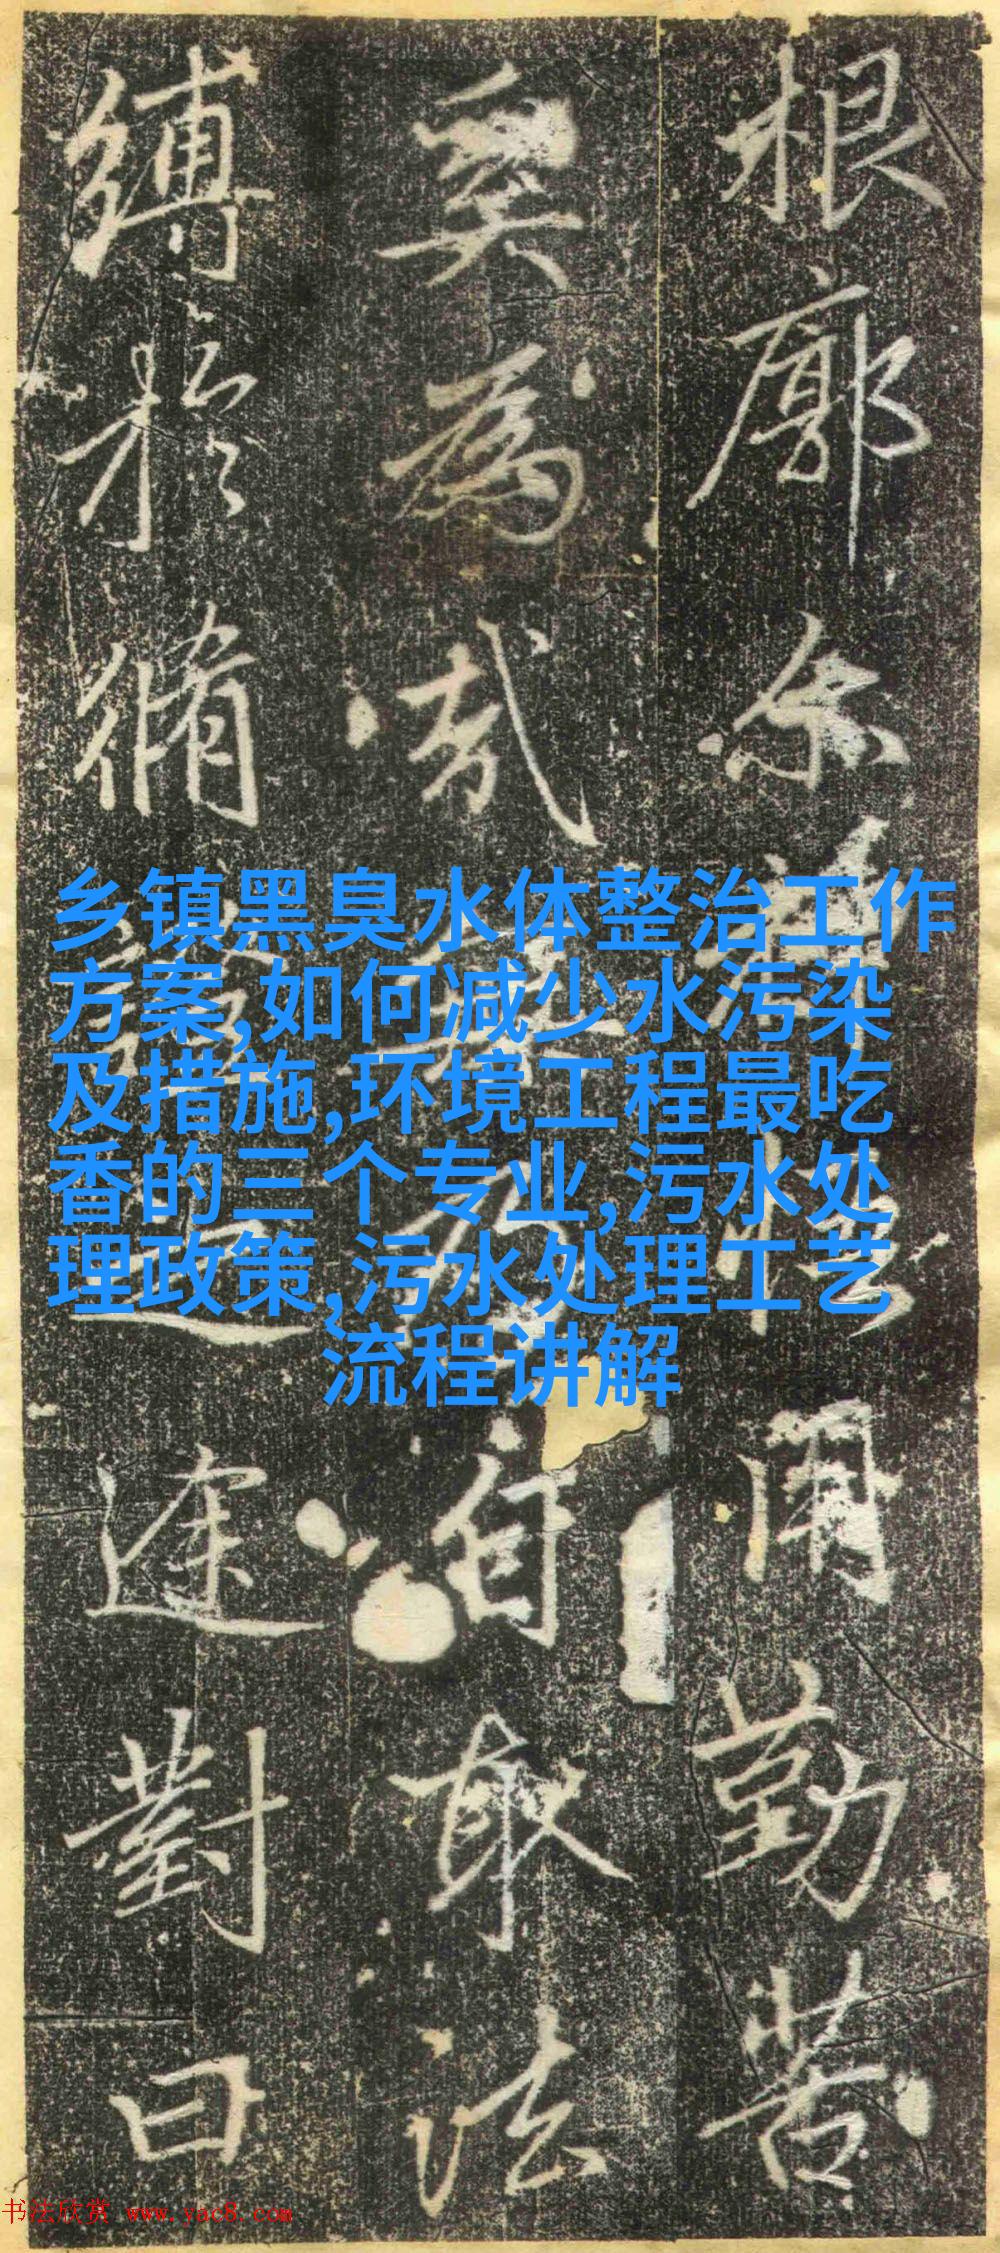 根廓尒用勤苦
奚為哉自取法
縛於脩途對曰
乡镇黑臭水体整治工作
方案,如何减少水污染
及措施,环境工程最吃
香的三个专业,污水处
理政策,污水处理工艺
流程讲解
书法欣赏 www.yac8.com